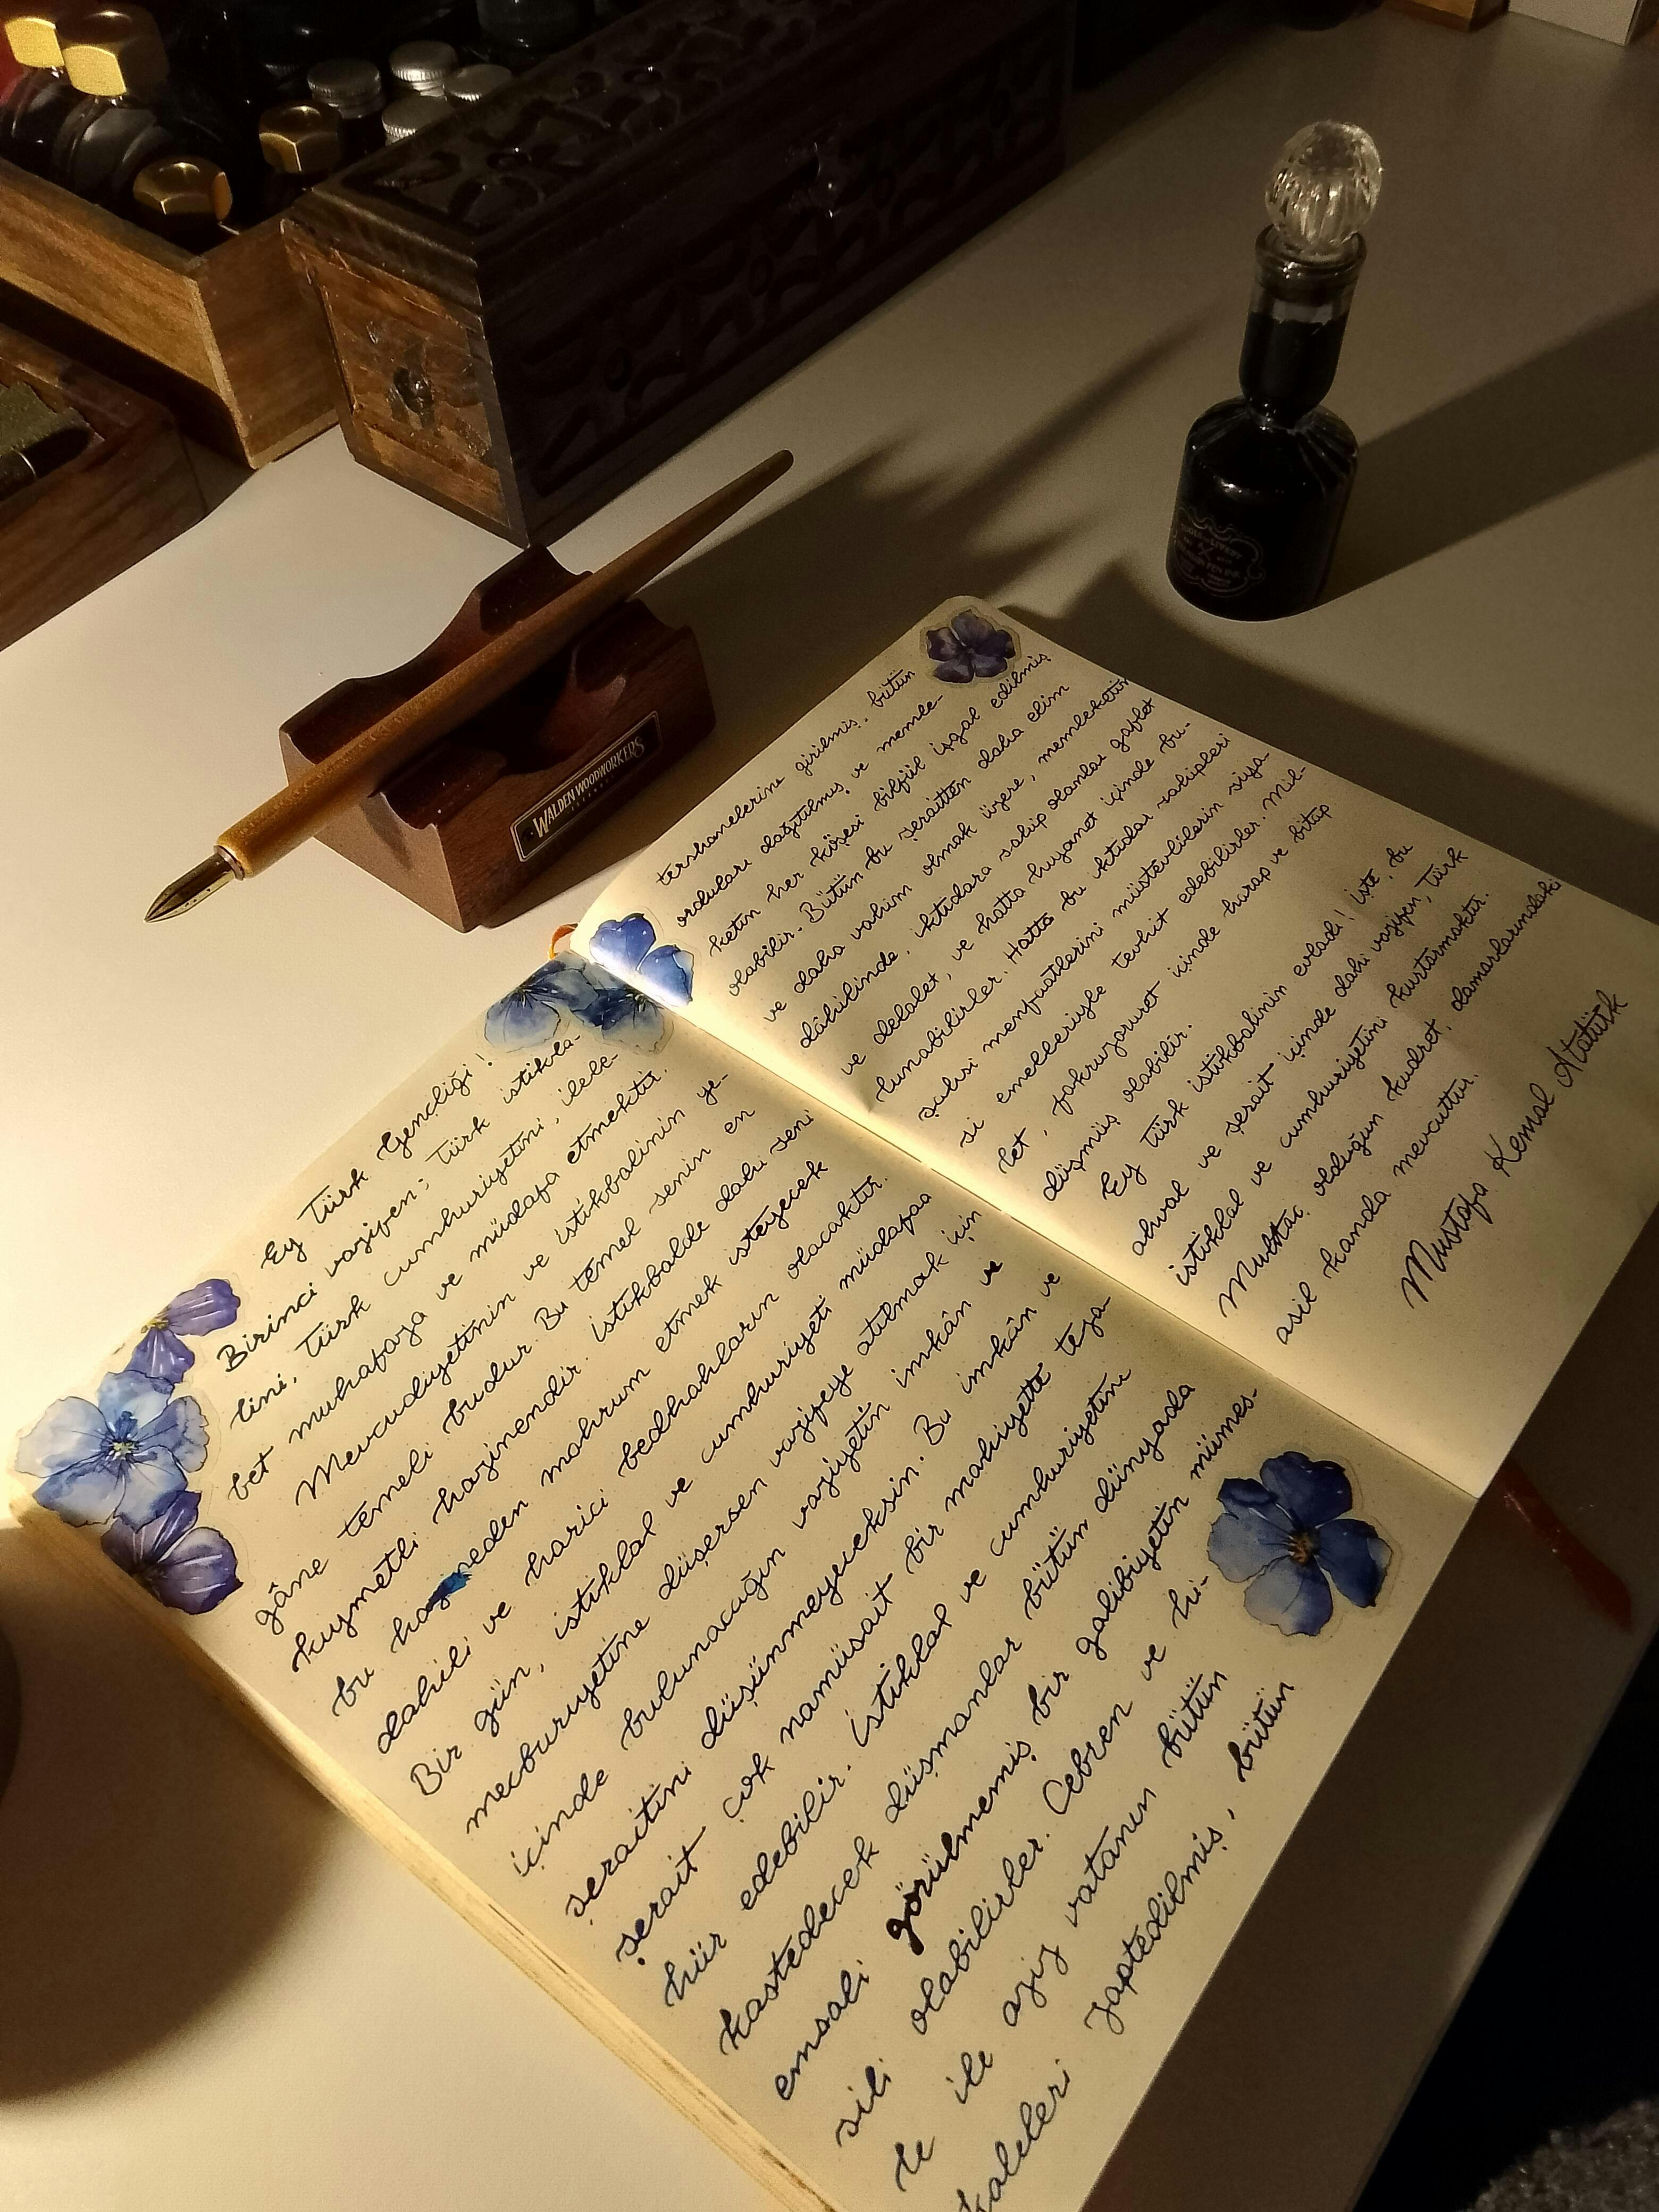 Ey Türk Gençliği!
Birinci vazifen; Türk istikla-
lini, Türk cumhuriyetini, ilele-
bet muhafaza ve müdafa etmektir.
Mevcudiyetinin ve istikbalinin ye-
gâne temeli budur. Bu temel senin en
kıymetli hazinendir. İstikbalde dahi seni
bu hazineden mahrum etmek isteyecek
dahili ve harici bedhahların olacaktır.
Bir gün, istiklal ve cumhuriyeti müdafaa
mecburiyetine düşersen vazifeye atılmak için
içinde bulunacağın vaziyetin imkân ve
şeraitini düşünmeyeceksin. Bu imkân ve
şerait çok namüsait bir mahiyette teza-
hür edebilir. İstiklal ve cumhuriyetine
kastedecek düşmanlar bütün dünyada
emsali görülmemiş bir galibiyetin mümes-
sili olabilirler. Cebren ve hi-
le ile aziz vatanın bütün
kaleleri zaptedilmiş, bütün
tershanelerine girilmiş, bütün
orduları dağıtılmış ve memle-
ketin her köşesi bilfiil işgal edilmiş
olabilir. Bütün bu şeraitten daha elim
ve daha vahim olmak üzere, memleketin
dâhilinde, iktidara sahip olanlar gaflet
ve delalet, ve hatta hıyanet içinde bu-
lunabilirler. Hatta bu iktidar sahipleri
şahsi menfaatlerini müstevlilerin siya-
si emelleriyle tevhit edebilirler. Mil-
let, fakruzaruret içinde harap ve bitap
düşmüş olabilir.
Ey Türk istikbalinin evladı! İşte, bu
ahval ve şerait içinde dahi vazifen, Türk
istiklal ve cumhuriyetini kurtarmaktır.
Muhtaç olduğun kudret, damarlarındaki
asil kanda mevcuttur.
Mustafa Kemal Atatürk
WALDEN WOODWORKERS